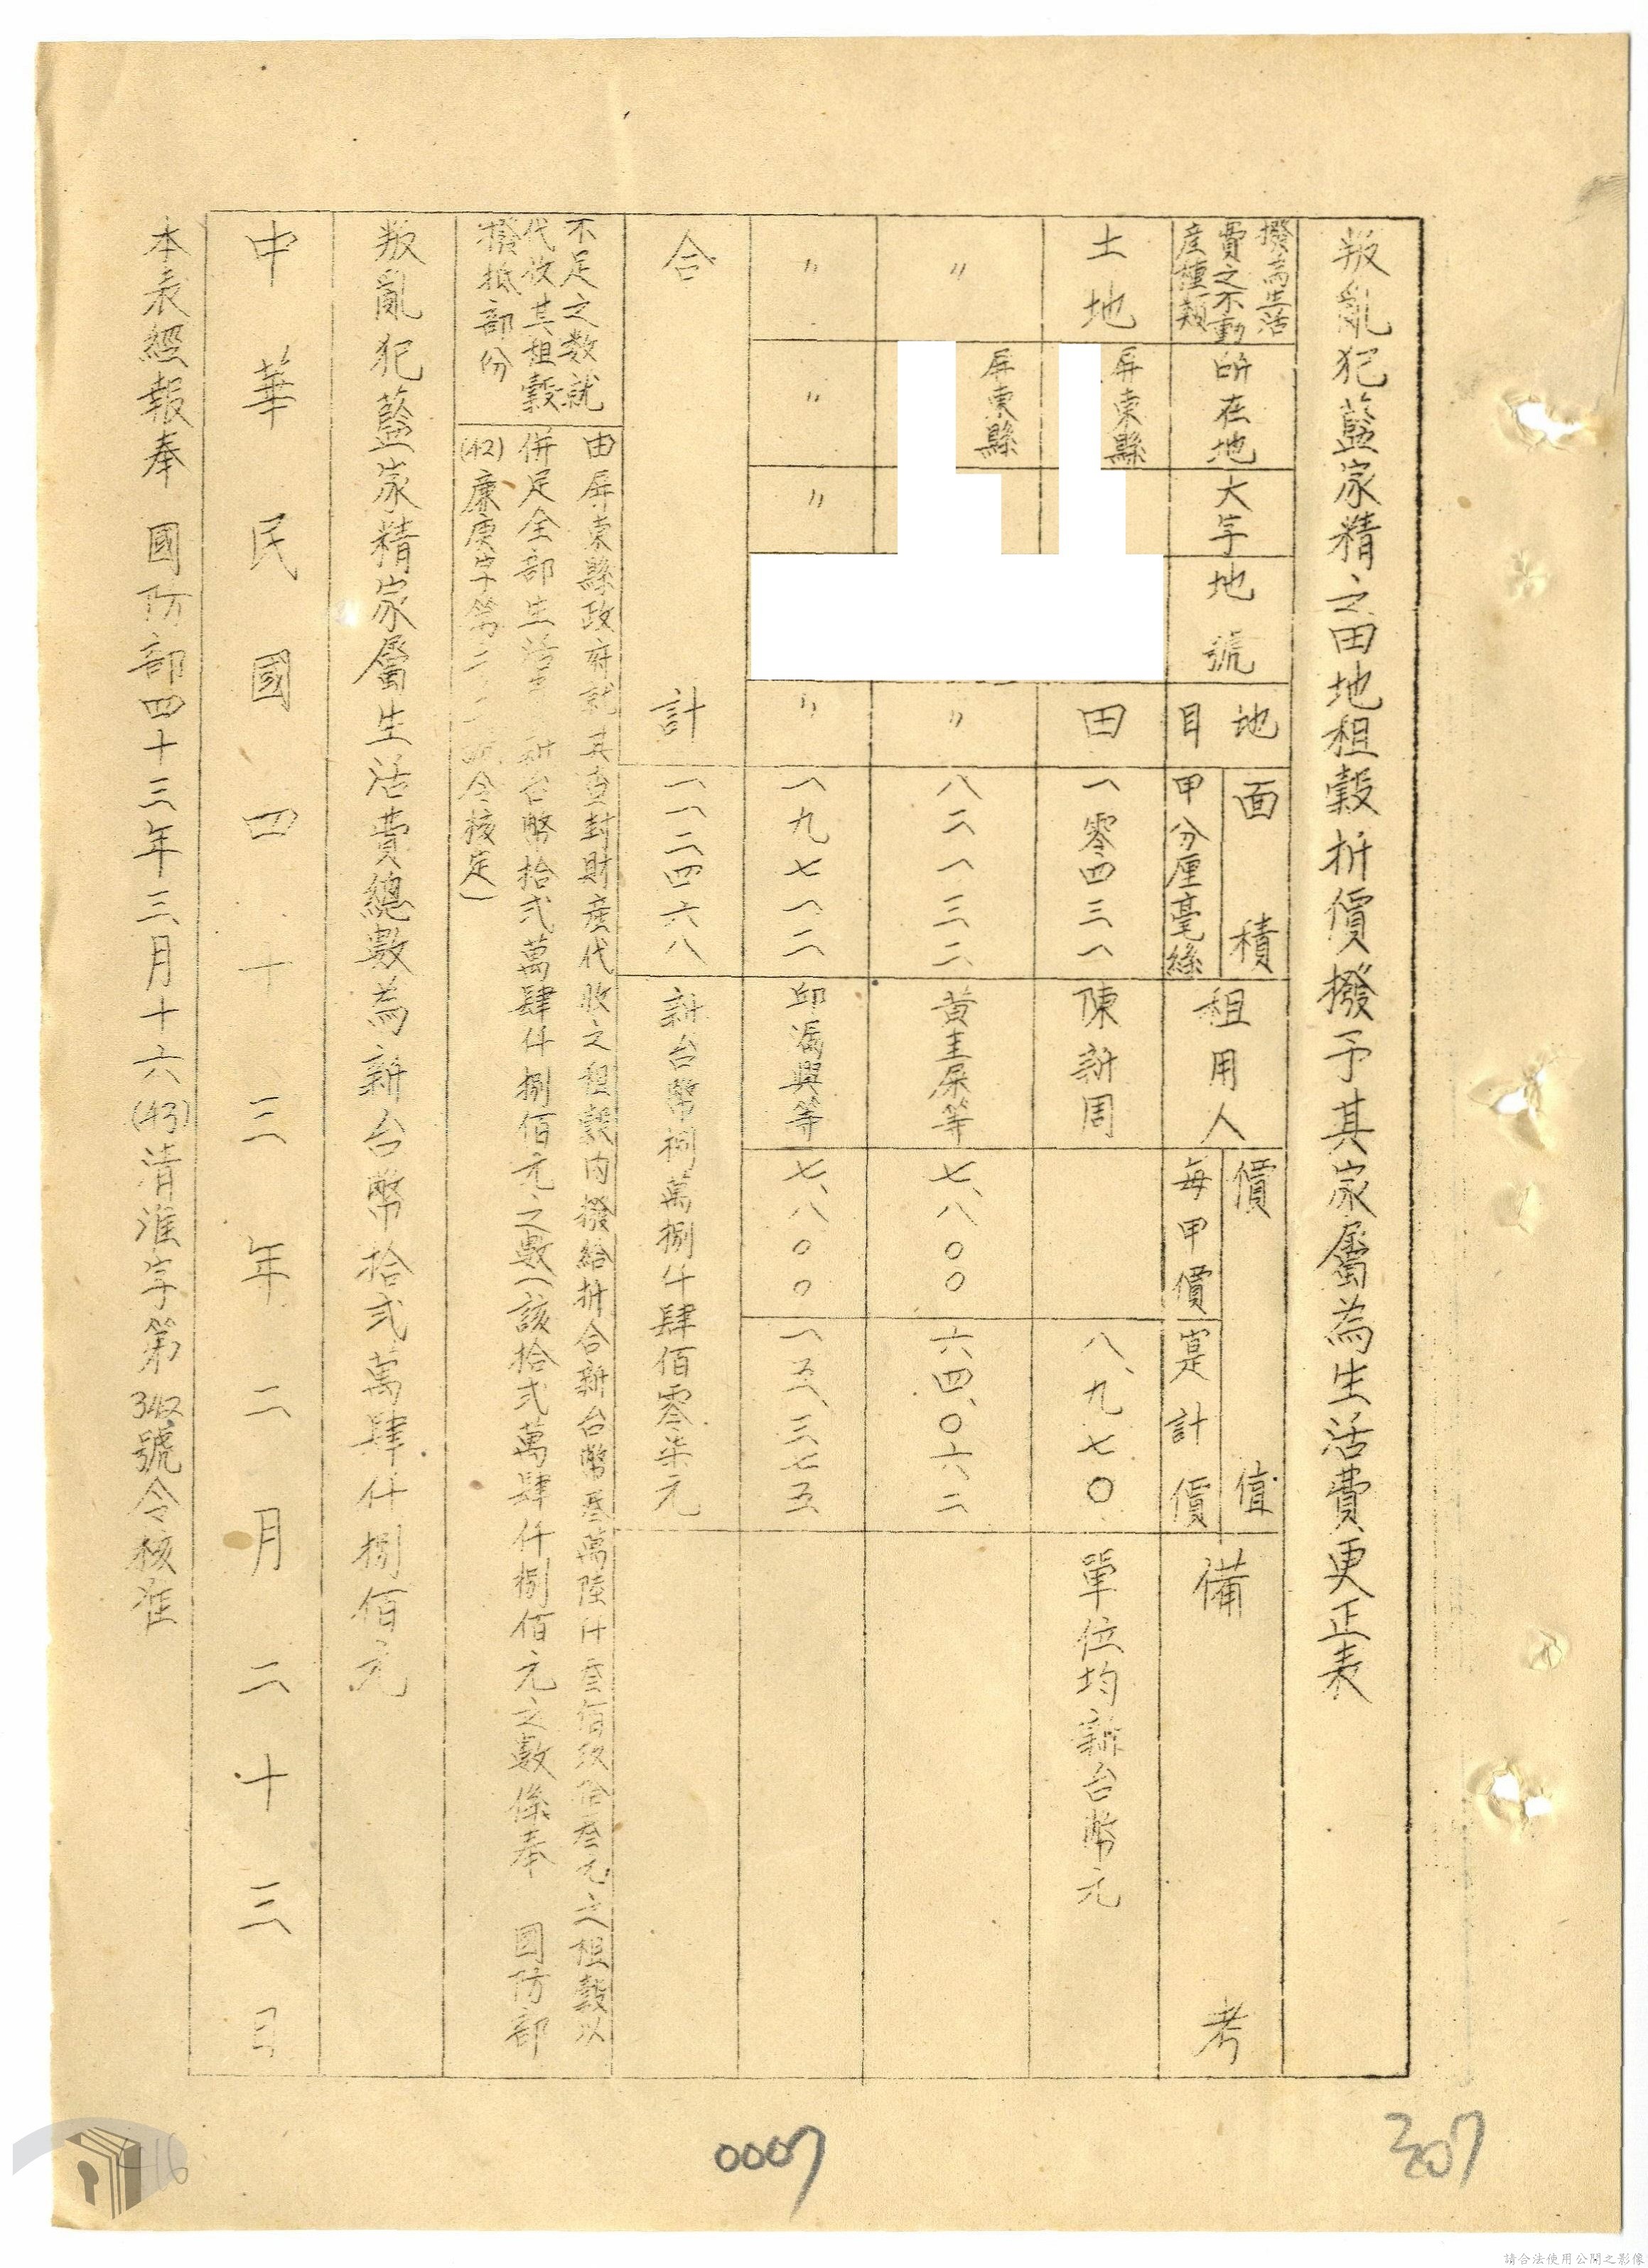 叛亂犯藍家精之田地租穀折價撥予其家屬為生活費更正表
撥為生活
費之不動
產種類
所在地
大字
地號
地目
面積
甲分厘毫絲
租用人
價值
每甲價
總計價
備考
土地
屏東縣
田
一零四三一
陳新周
八、九七〇
單位均新台幣元
〃
屏東縣
〃
八二一三二
黃圭屎等
七、八〇〇
六四、〇六二
〃
〃
〃
〃
一九七一二
邱滿興等
七、八〇〇
一五、三七五
合計
一一二四六八
新台幣捌萬捌仟肆佰零柒元
不足之數就
代收其租穀
撥抵部份
由屏東縣政府就其查封財產代收之租穀內撥給折合新台幣叁萬陸仟叁佰玖拾叁元之租穀以
併足全部生活費新台幣拾弍萬肆仟捌佰元之數(該拾弍萬肆仟捌佰元之數係奉 國防部
(42)廉庚字第二 號令核定)
叛亂犯藍家精家屬生活費總數為新台幣拾弍萬肆仟捌佰元
中華民國四十三年二月二十三日
本表經報奉 國防部四十三年三月十六(43)清准字第342號令核准
0007
307
116
請合法使用公開之影像